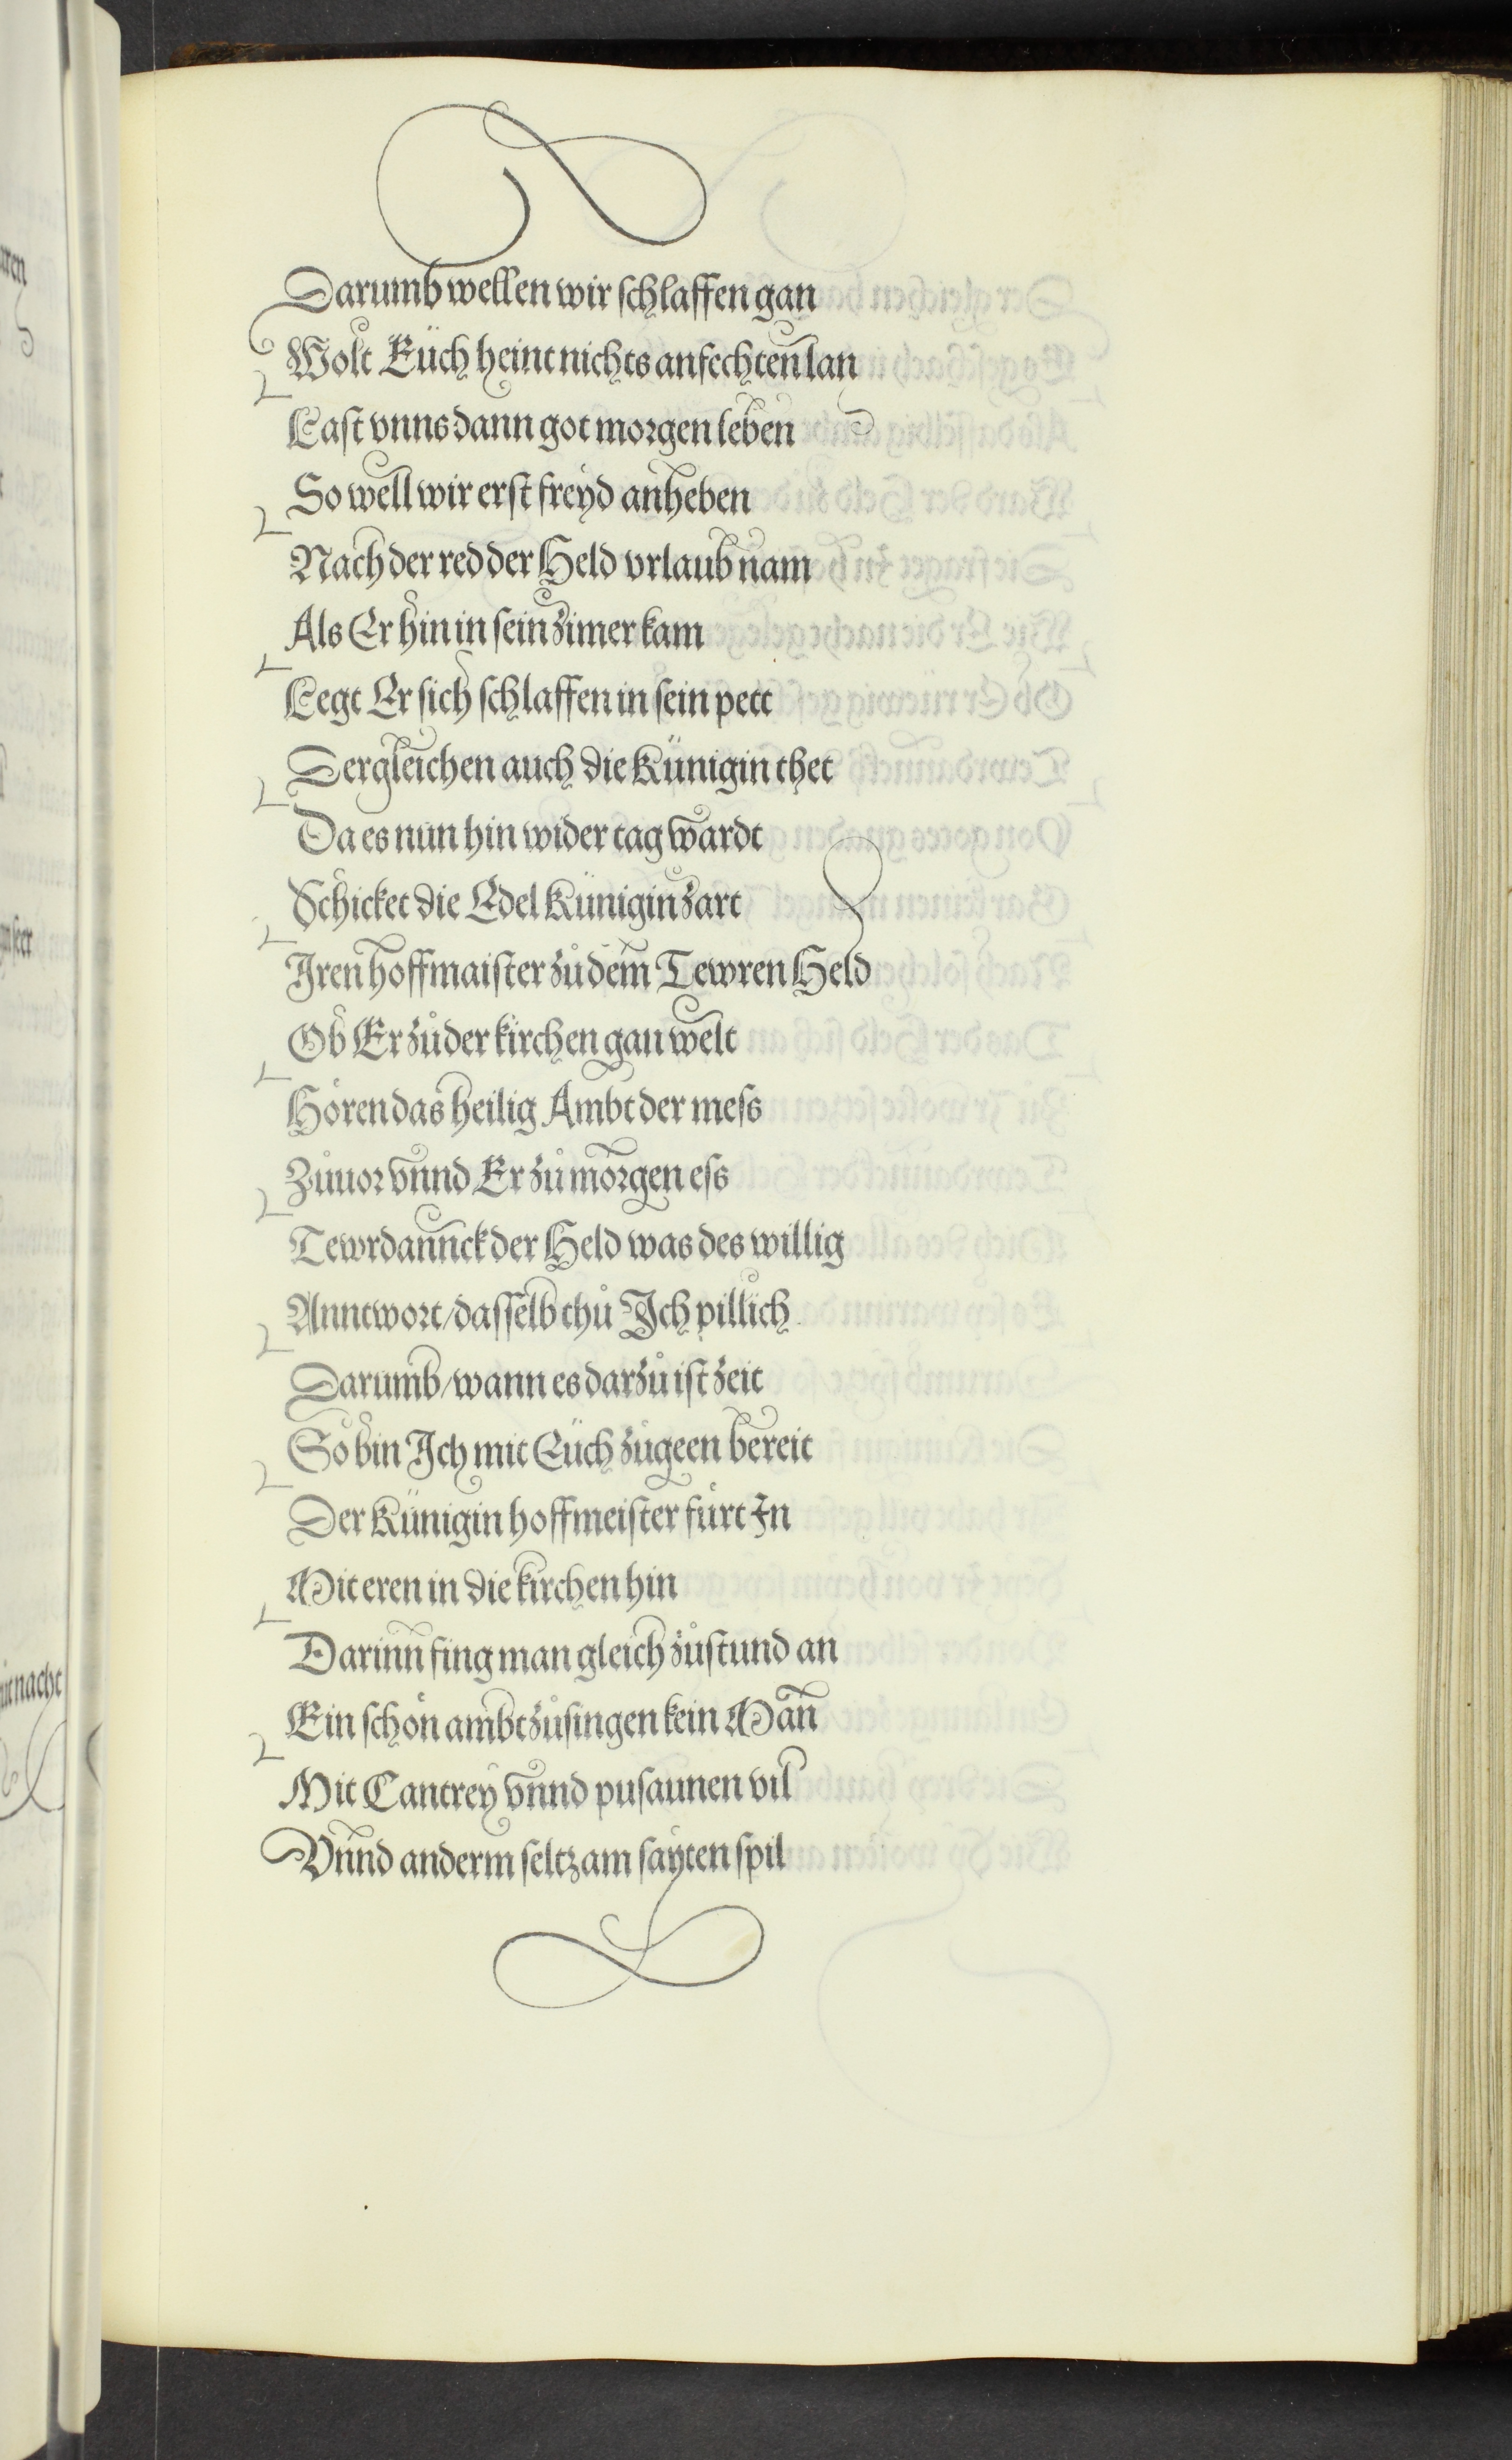 Darumb wellen wir schlaffen gan
Wolt Euch heint nichts anfechten lan
Last vnns dann got morgen leben
So well wir erst freyd anheben
Nach der red der Held vrlaub nam
Als Er hin in sein zimer kam
Legt Er sich schlaffen in sein pett
Dergleichen auch die Künigin thet
Da es nun hin wider tag wardt
Schicket die Edel Künigin zart
Iren hoffmaister zů dem Tewren Held
Ob Er zů der kirchen gan welt
Hören das heilig Ambt der mess
Zůuor vnnd Er zů morgen ess
Tewrdannck der Held was des willig
Anntwort/dasselb thů Ich pillich
Darumb/wann es darzů ist zeit
So bin Ich mit Euch zůgeen bereit
Der Künigin hoffmeister fůrt In
Mit eren in die kirchen hin
Darinn fing man gleich zůstund an
Ein schön ambt zůsingen kein Man
Mit Cantrey vnnd pusaunen vil
Vnnd anderm seltzam sayten spil